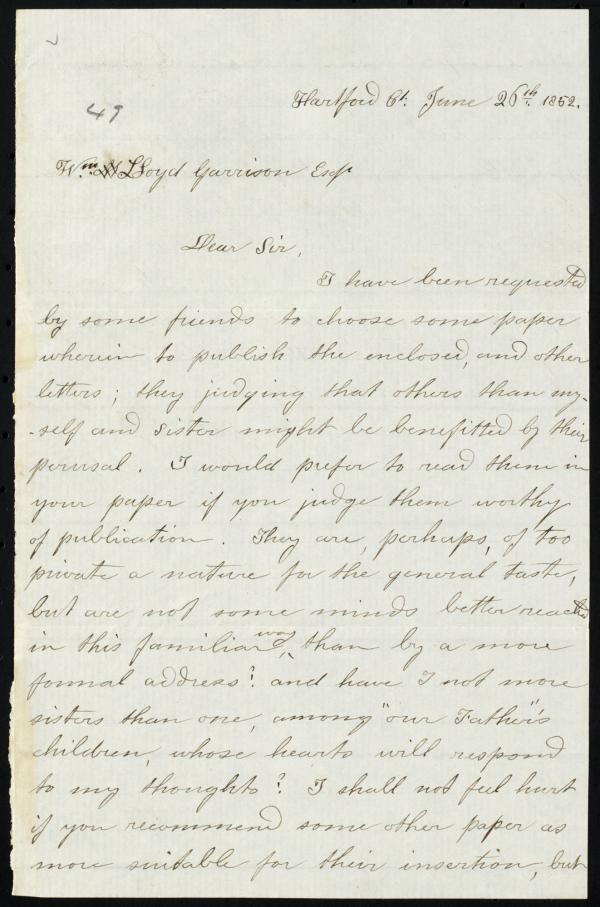 49
Hartford Ct. June 26th. 1852.
Wm. Lloyd Garrison Esqr
Dear Sir,
I have been requested
by some friends to choose some paper
wherein to publish the enclosed, and other
letters; they judging that others than my-
-self and sister might be benefitted by their
perusal. I would prefer to read them in
your paper if you judge them worthy
of publication. They are, perhaps, of too
private a nature for the general taste,
but are not some minds better reached
in this familiar way, than by a more
formal address? and have I not more
sisters than one, among "our Father's"
children, whose hearts will respond
to my thoughts? I shall not feel hurt
if you recommend some other paper as
more suitable for their insertion, but